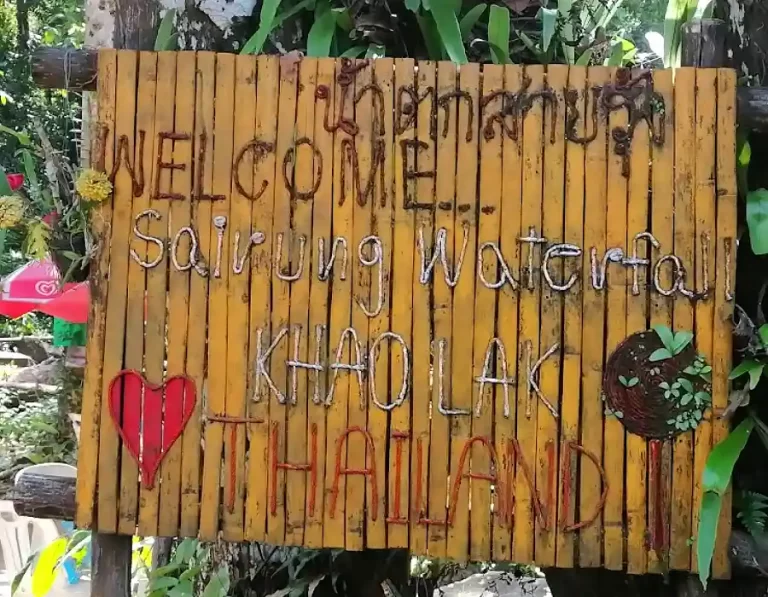 น้ำตกสายรุ้ง
WELCOME...
Sairung Waterfall
KHAO LAK
THAILAND